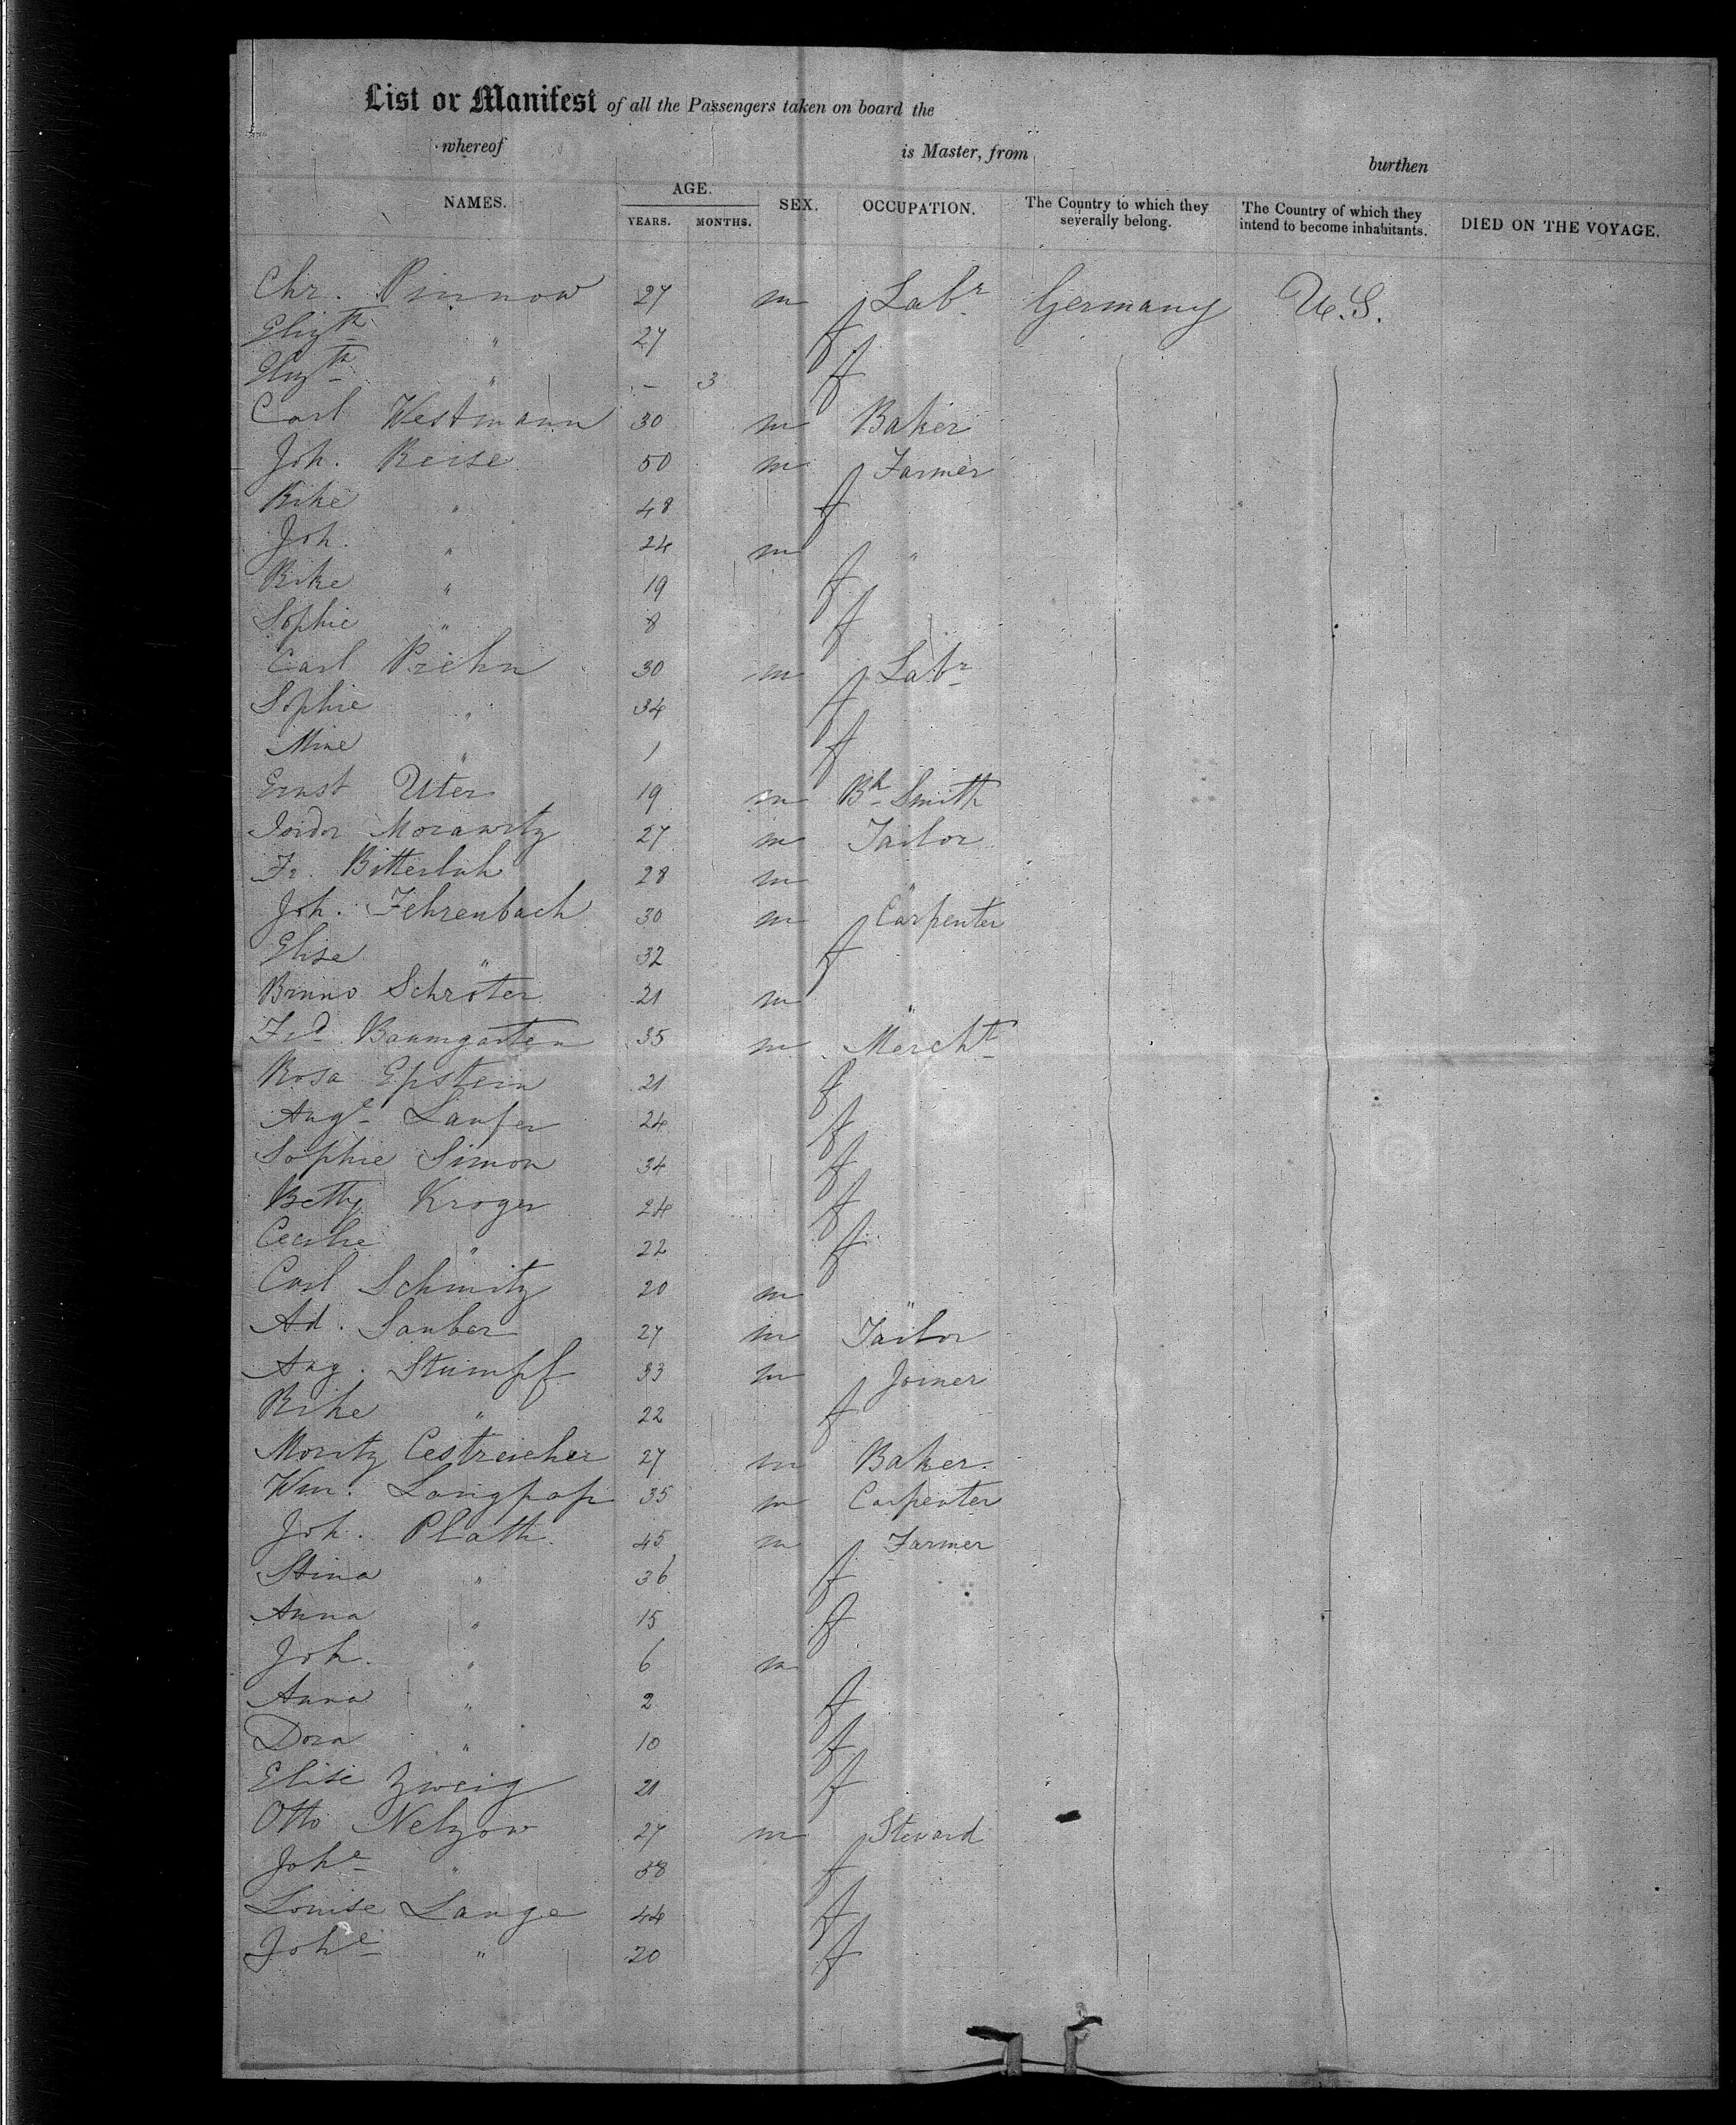 List or Manifest of all the Passengers taken on board the
whereof is Master, from burthen
NAMES. AGE. YEARS. MONTHS. SEX. OCCUPATION. The Country to which they severally belong. The Country of which they intend to become inhabitants. DIED ON THE VOYAGE.
Chr. Pinnow 27 m Labr Germany U.S.
Elizth " 27 f
Elizth " - 3 f
Carl Westmann 30 m Baker
Joh. Reise 50 m Farmer
Rike " 48 f
Joh. " 24 m "
Rike " 19 f
Sophie " 8 f
Carl Prehn 30 m Labr
Sophie " 34 f
Mine " 1 f
Ernst Uter 19 m Bk Smith
Isidor Morawitz 27 m Tailor
Fr. Bitterlich 28 m "
Joh. Fehrenbach 30 m Carpenter
Elise " 32 f
Bruno Schröter 21 m "
Frd Baumgarten 35 m Mercht
Rosa Epstein 21 f
Auge Laufer 24 f
Sophie Simon 34 f
Betty Kroger 24 f
Cecilie " 22 f
Carl Schmitz 20 m "
Ad. Sauber 27 m Tailor
Aug. Stumpf 33 m Joiner
Rike " 22 f
Moritz Oestreicher 27 m Baker.
Wm. Langpap 35 m Carpenter
Joh. Plath 45 m Farmer
Stina " 36 f
Anna " 15 f
Joh. " 6 m
Anna " 2 f
Dora " 10 f
Elise Zweig 21 f
Otto Nelzow 27 m Steward
Johe " 58 f
Louise Lange 44 f
Johe " 20 f